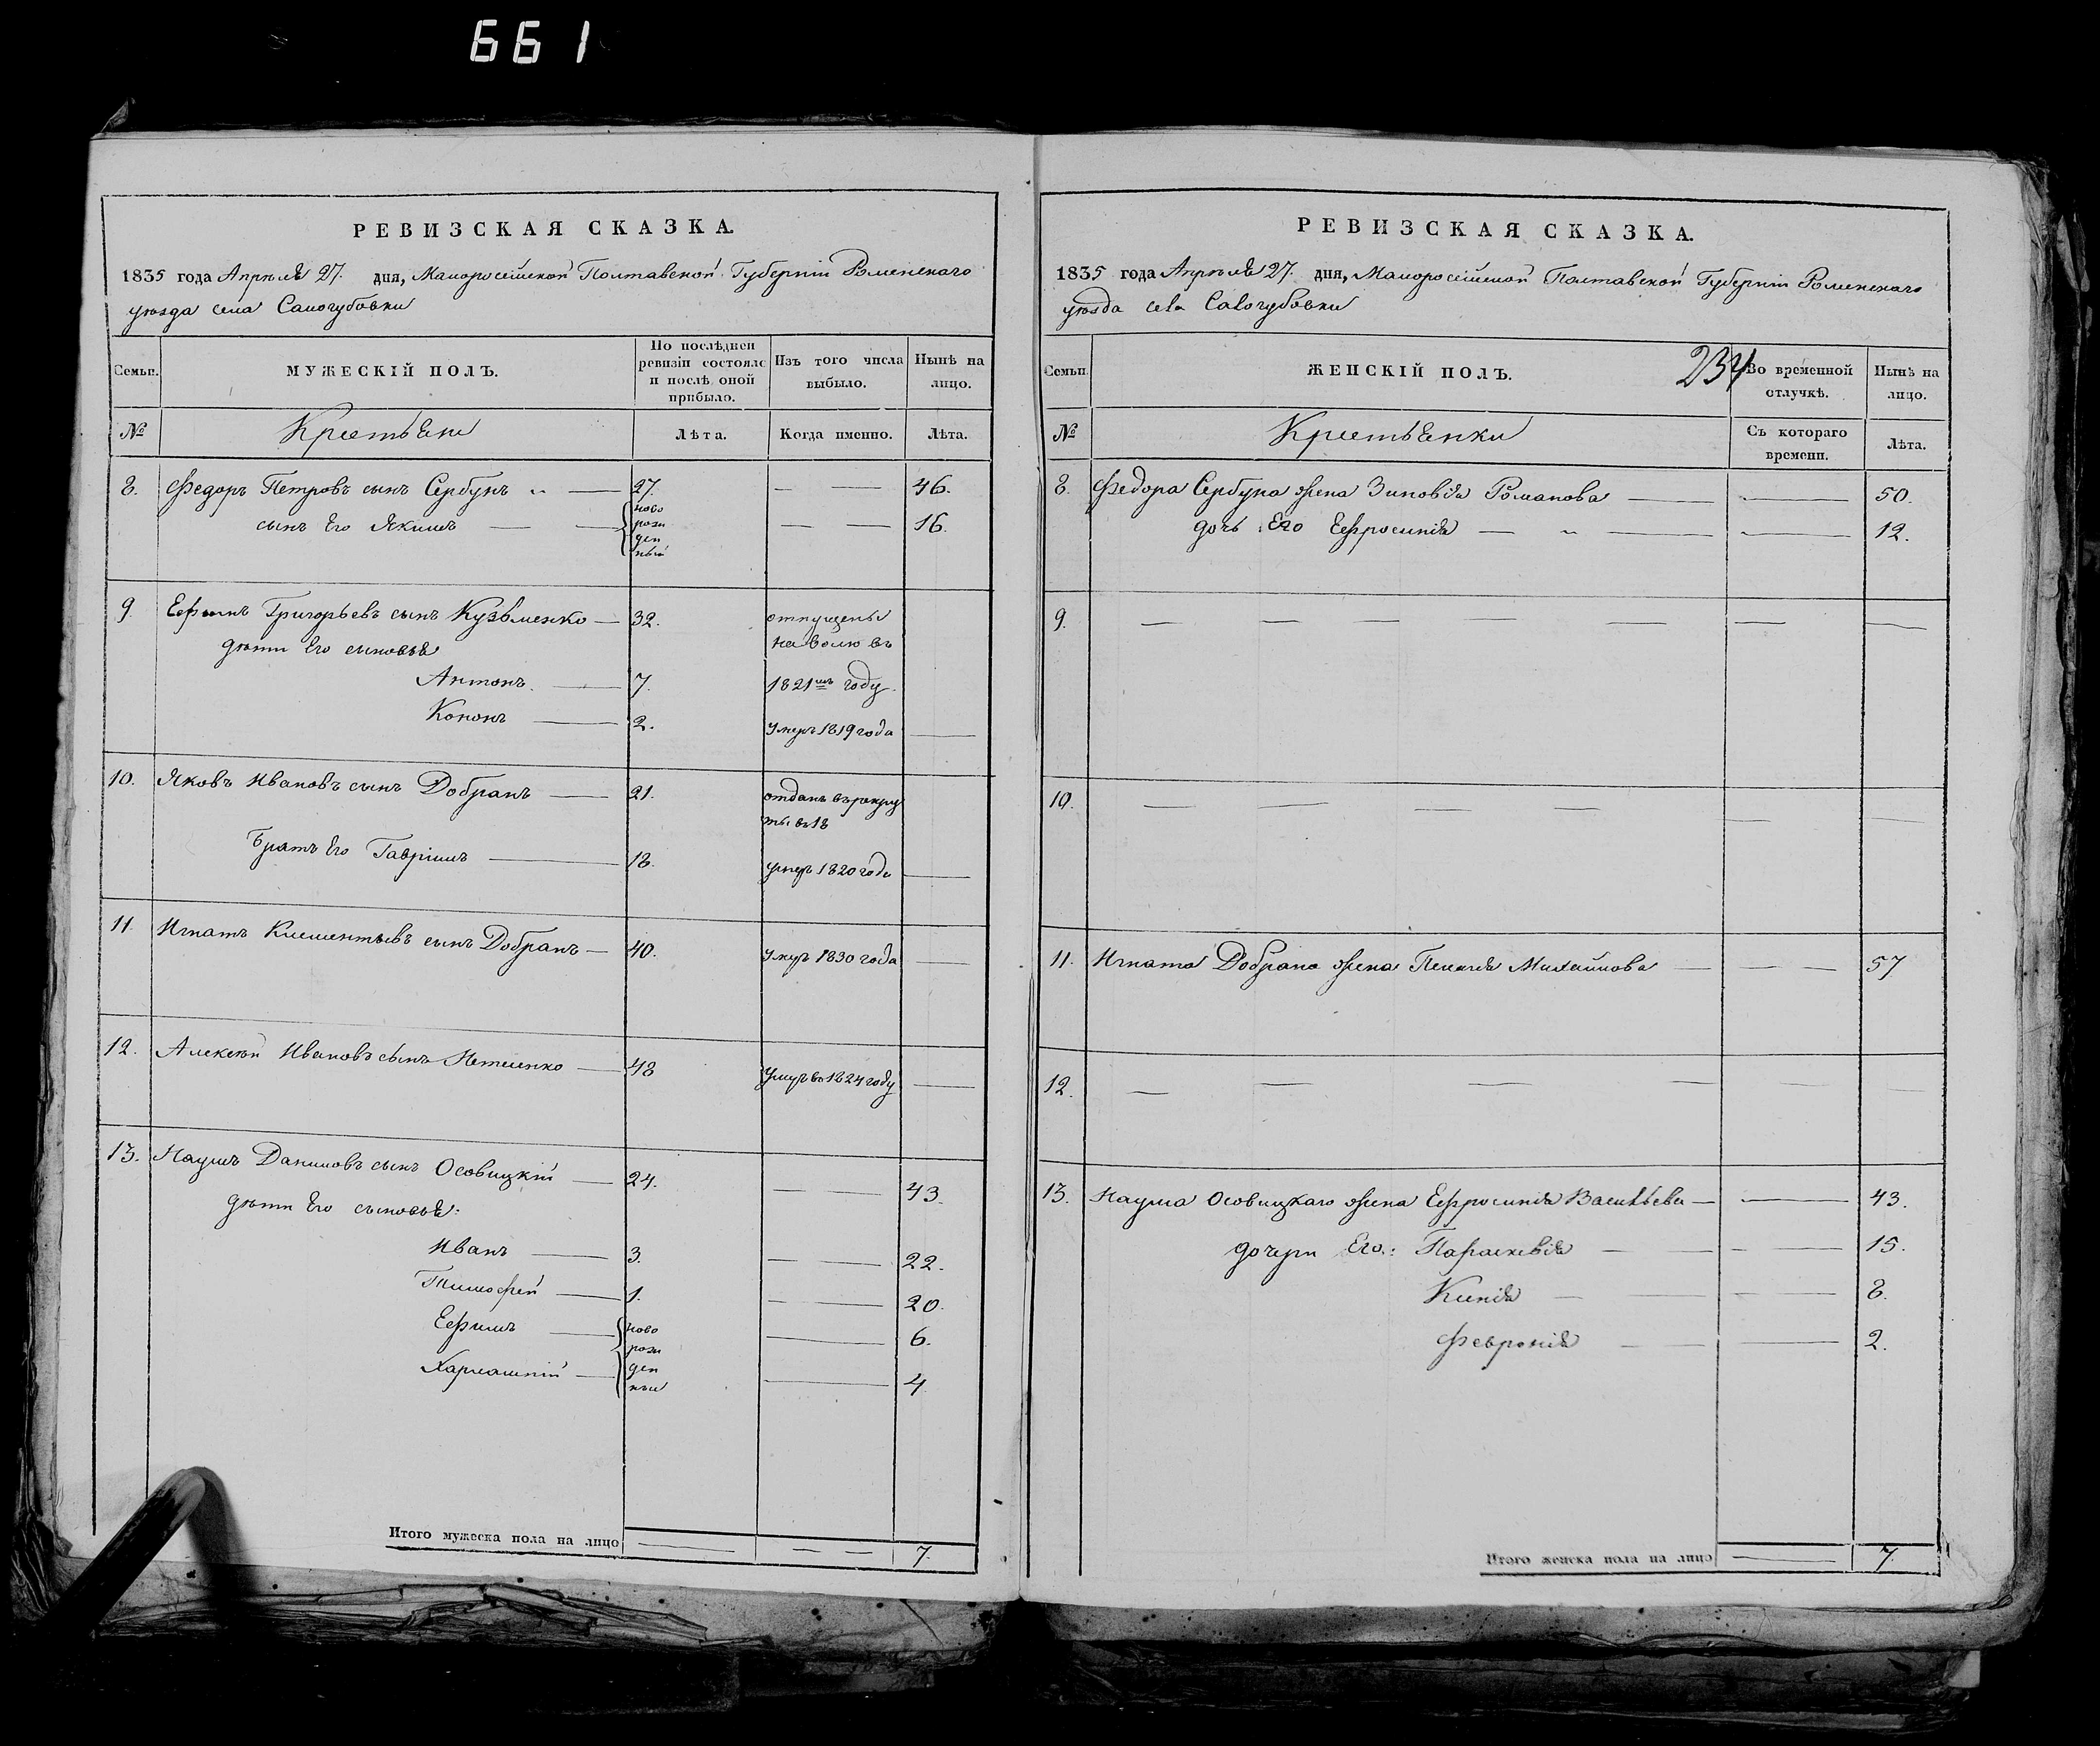 661
РЕВИЗСКАЯ СКАЗКА.
1835 года Апрѣля 27. дня, Малоросcійской Полтавской Губерніи Роменскаго
уѣзда села Салогубовки
Семьи. МУЖЕСКІЙ ПОЛЪ. По послѣдней ревизіи состояло и послѣ оной прибыло. Изъ того числа выбыло. Нынѣ на лицо.
№ Крестьяне Лѣта. Когда именно. Лѣта.
8. Федоръ Петровъ сынъ Сербунъ 27. 46.
сынъ Его Якимъ новорожденный 16.
9. Ефимъ Григорьевъ сынъ Кузьменко 32. отпущены
дѣти Его сыновья на волю въ
Антонъ. 7. 1821мъ году.
Кононъ 2. умеръ 1819 года
10. Яковъ Ивановъ сынъ Добранъ 21. отданъ въ рекру
ты въ 18
Братъ Его Гавріилъ 18. умеръ 1820 года
11. Игнатъ Климентьевъ сынъ Добранъ 40. умеръ 1830 года
12. Алексѣй Ивановъ сынъ 48 умеръ въ 1824 году
13. Наумъ Даниловъ сынъ Осовицкій 24. 43.
дѣти Его сыновья:
Иванъ 3. 22.
Тимофей 1. 20.
Ефимъ ново 6.
рож
Харлампій ден 4
ныи
Итого мужеска пола на лицо 7.
РЕВИЗСКАЯ СКАЗКА.
1835 года Апрѣля 27. дня, Малороссійской Полтавской Губерніи Роменскаго
уѣзда села Салогубовки
234
Семьи. ЖЕНСКІЙ ПОЛЪ. Во временной отлучкѣ. Нынѣ на лицо.
№ Крестьянки Съ котораго времени. Лѣта.
8. Федора Сербуна жена Зиновія Романова 50.
дочь Его Ефросинія 12.
9.
10.
11. Игната Добрана жена Пелагія Михайлова 57
12.
13. Наума Осовицкаго жена Ефросинія Васильева 43.
дочери Его: Параскевія 15.
8.
Февронія 2.
Итого женска пола на лицо 7.